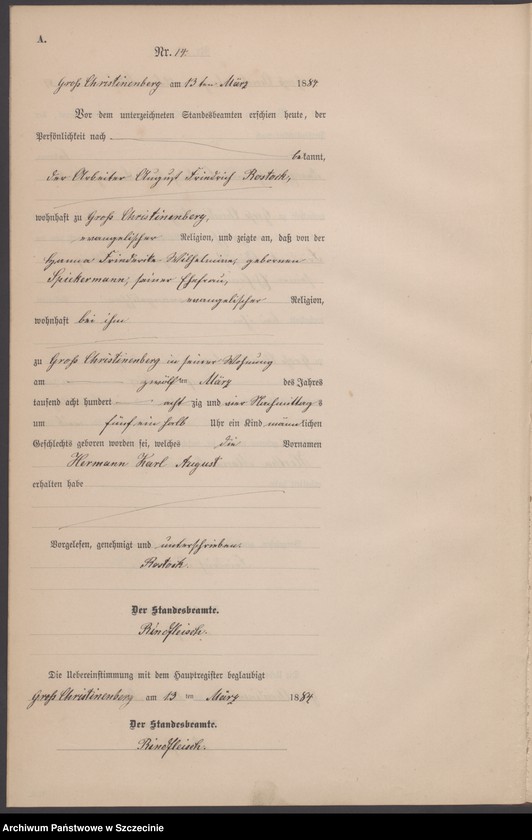 A.
Nr. 14.
Groß Christinenberg am 13 ten März 1884
Vor dem unterzeichneten Standesbeamten erschien heute, der
Persönlichkeit nach
bekannt,
der Arbeiter August Friedrich Rostock,
wohnhaft zu Groß Christinenberg,
evangelischer Religion, und zeigte an, daß von der
Hanna Friederike Wilhelmine, gebornen
Speckermann, seiner Ehefrau,
evangelischer Religion,
wohnhaft bei ihm
zu Groß Christinenberg in seiner Wohnung
am zwölften März des Jahres
tausend acht hundert acht zig und vier Nachmittags
um fünf ein halb Uhr ein Kind männlichen
Geschlechts geboren worden sei, welches die Vornamen
Hermann Karl August
erhalten habe
Vorgelesen, genehmigt und unterschrieben:
Rostock
Der Standesbeamte.
Rindfleisch.
Die Uebereinstimmung mit dem Hauptregister beglaubigt
Groß Christinenberg am 13 ten März 1884
Der Standesbeamte.
Rindfleisch.
Archiwum Państwowe w Szczecinie